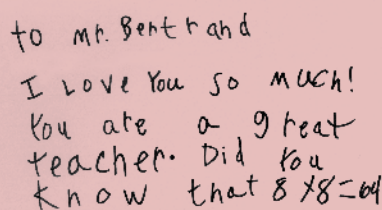 to Mr. Bertrand
I Love You so much!
You are a great
teacher. Did You
know that 8×8=64